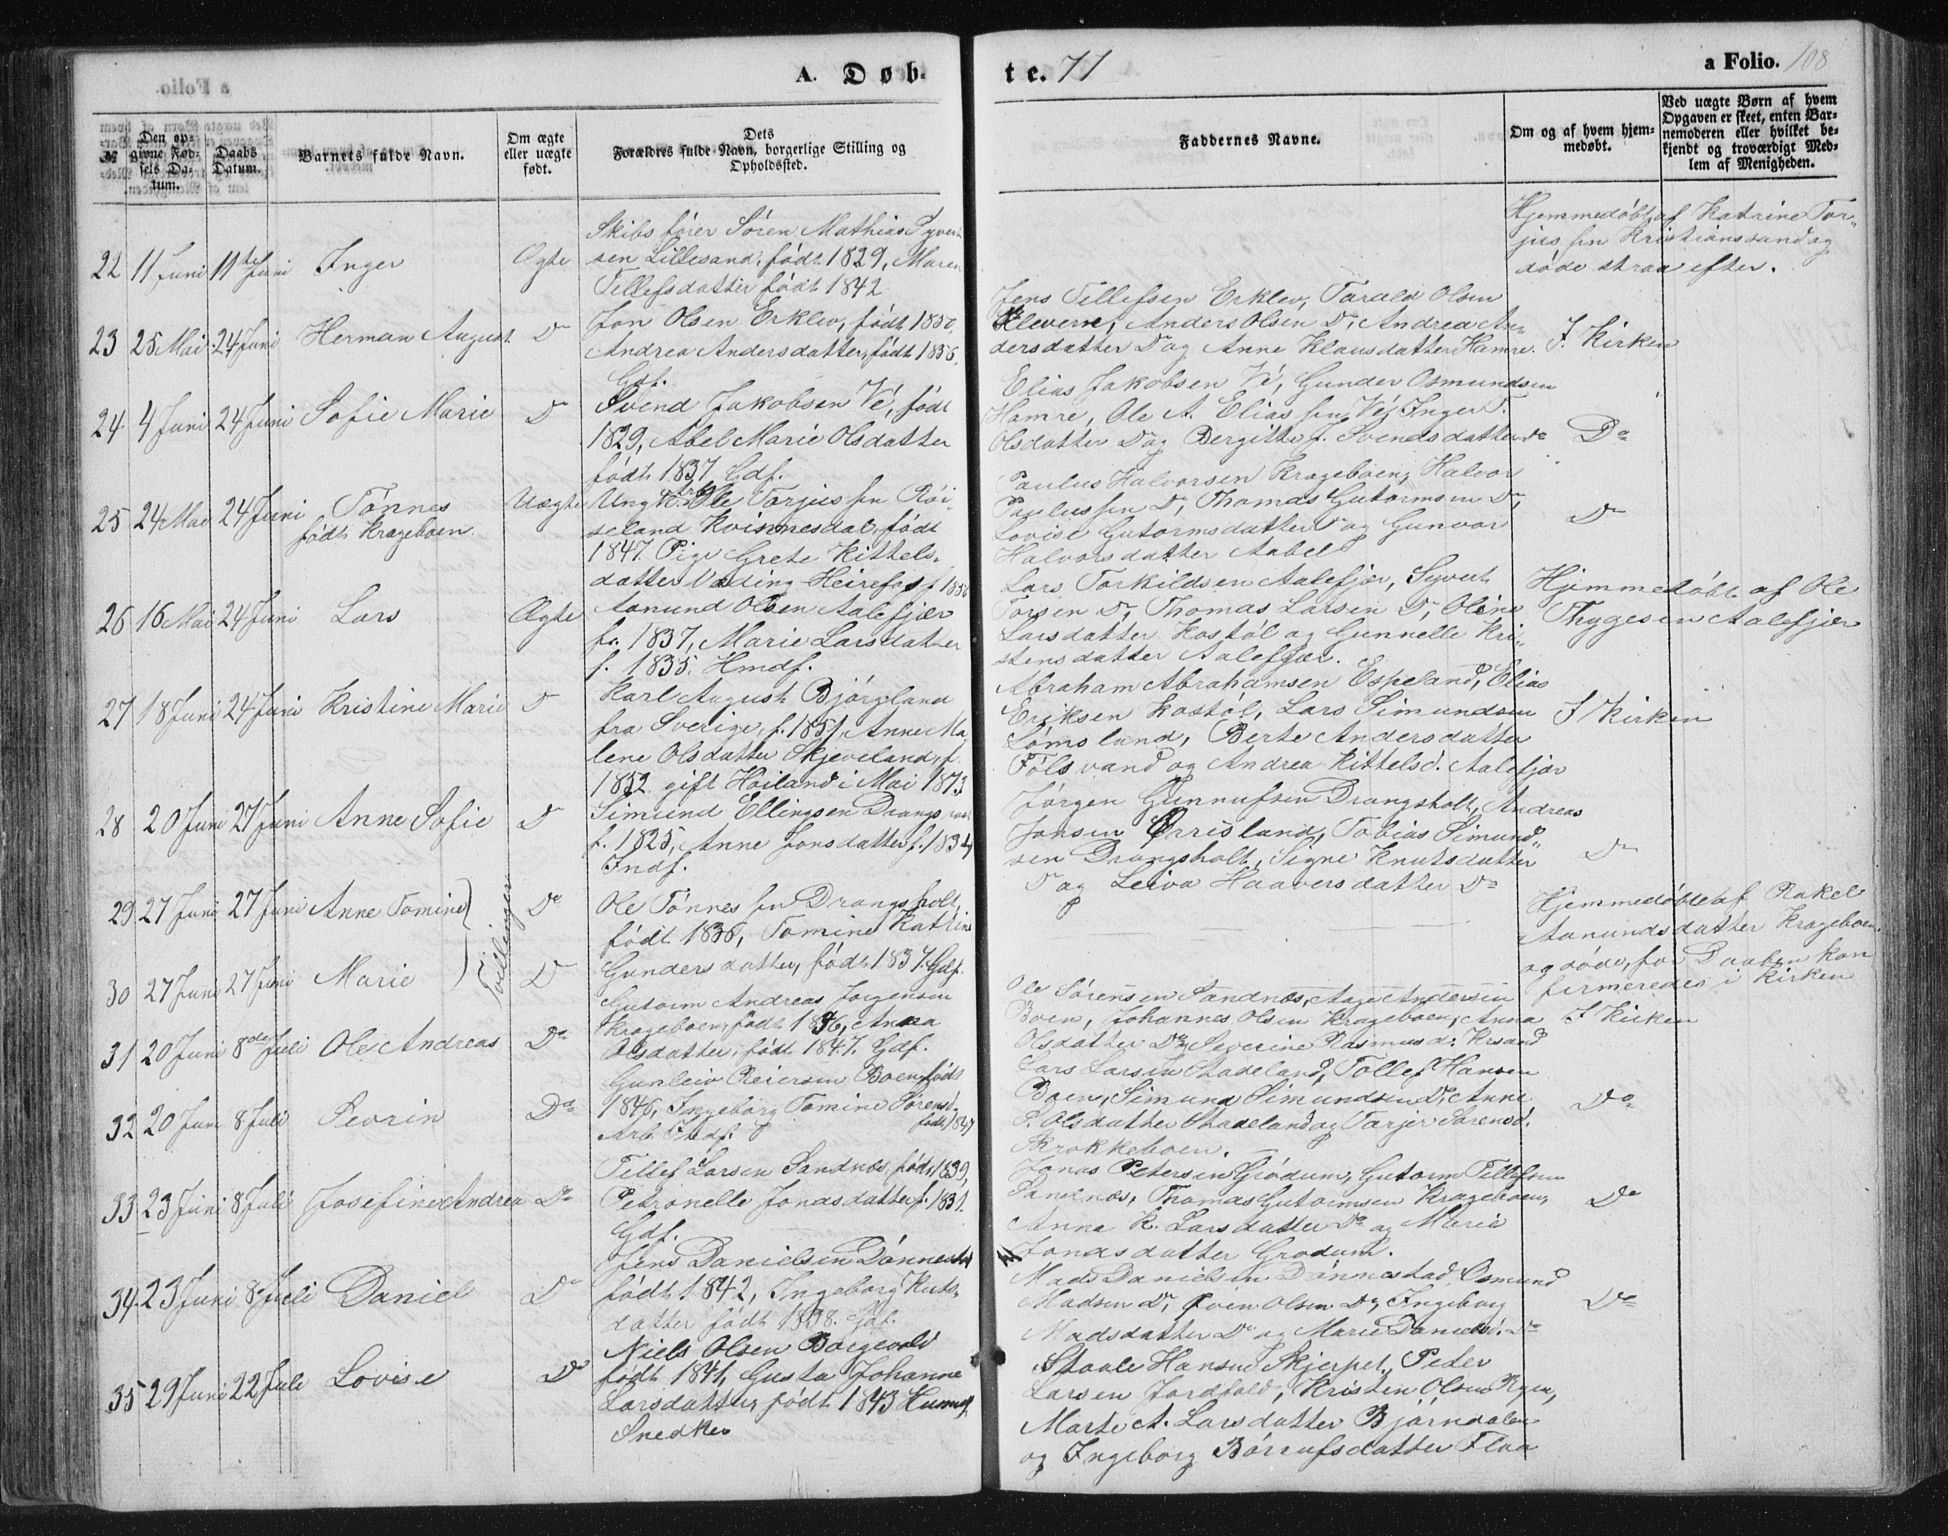 A. Døb-
te. 77
a Folio. 108
№
Den op-
givne Fød-
sels Da-
tum.
Daabs
Datum.
Barnets fulde Navn.
Om ægte
eller uægte
født.
Dets
Forældres fulde Navn, borgerlige Stilling og
Opholdssted.
Faddernes Navne.
Om og af hvem hjem-
medøbt.
Ved uægte Børn af hvem
Opgaven er skeet, enten Bar-
nemoderen eller hvilket be-
kjendt og troværdigt Med-
lem af Menigheden.
22 11 Juni 11te Juni Inger Ægte
Skibsfører Søren Mathias Syvert
sen Lillesand, født 1829, Maren
Tellefsdatter født 1842
Hjemmedøbt af Katrine Tor-
jusen Kristianssand og
døde strax efter.
23 25 Mai 24 Juni Herman August Do
Jon Olsen Erklev, født 1850,
Andrea Andersdatter, født 1856,
Gdf.
Jens Tellefsen Erklev, Tarald Olsen
Klevern, Anders Olsen Do, Andrea An-
dersdatter Do og Anne Klausdatter Hamre.
I. Kirken
24 4 Juni 24 Juni Sofie Marie Do
Svend Jakobsen Vé, født
1829, Abel Marie Olsdatter
født 1837. Gdf.
Elias Jakobsen Vé, Gunder Osmundsen
Hamre, Ole A. Eliassen Vé, Inger T.
Olsdatter Do og Bergitte J. Svendsdatter Do
Do
25 24 Mai 24 Juni Tønnes
født Krageboen
Uægte
Ungk. Ole Torjussen Röi-
seland Kvinnesdal, født
1847. Pige Grete Kittels-
datter Vading Heirefos f. 1850
Paulus Halvorsen Krageboen, Halvor
Paulussen Do, Thomas Gutormsen Do,
Lovise Gutormsdatter Do og Gunvor
Halvorsdatter Aabel
Do
26 16 Mai 24 Juni Lars Ægte
Aanund Olsen Aalefjær
f. 1837, Marie Larsdatter
f. 1835. Hmdf.
Lars Torkildsen Aalefjær, Syvert
Torsen Do, Thomas Larsen Do, Oline
Larsdatter Kostöl og Gunnelle Kri-
stensdatter Aalefjær.
Hjemmedøbt af Ole
Thygesen Aalefjær
27 18 Juni 24 Juni Kristine Marie Do
Karl August Bjørglund
fra Sverige, f. 1851, Anne Ma-
lene Olsdatter Skjeveland, f.
1852. gift Höiland i Mai 1873
Abraham Abrahamsen Espeland, Elias
Eriksen Kostøl, Lars Simundsen
Lømsland, Berte Andersdatter
Følsvand og Andrea Kittelsd. Aalefjær
I Kirken
28 20 Juni 27 Juni Anne Sofie Do
Simund Ellingsen Drangsholt
f. 1825, Anne Jonsdatter f. 1834,
Indf.
Jørgen Gunnufsen Drangsholt, Andreas
Jonsen Ørrisland, Tobias Simund-
sen Drangsholt, Signe Knutsdatter
Do og Leiva Haaversdatter Do
Do
29 27 Juni 27 Juni Anne Tomine Do
Tvillinger
Ole Tønnessen Drangsholt,
født 1836, Tomine Katrine
30 27 Juni 27 Juni Marie Do
Gundersdatter, født 1837. Gdf.
Hjemmedøbte af Rakel
Aanundsdatter Krageboen
og døde, før Daaben kon
firmeredes i Kirken
31 20 Juni 8de Juli Ole Andreas Do
Gutorm Andreas Jørgensen
Krageboen, født 1846, Anna
Olsdatter, født 1847. Gdf.
Ole Sørensen Sandnæs, Aage Andersen
Boen, Johannes Olsen Krageboen, Anna
Olsdatter Do, Severine Rasmusd. Krsand
I Kirken
32 20 Juni 8 Juli Pevrin Do
Gunleiv Reiersen Boen, født
1846, Ingeborg Tomine Sørensd.
født 1847
Arb. Indf.
Lars Larsen Stadeland, Tollef Hansen
Boen, Simund Simundsen Do, Anne
P. Olsdatter Stadeland og Tarjer Sørensd.
Skrokkeboen.
Do
33 23 Juni 8 Juli Josefine Andrea Do
Tellef Larsen Sandnæs, født 1839,
Petronelle Jonasdatter f. 1831.
Gdf.
Jonas Petersen Grødum, Gutorm Tellefsen
Sandnæs, Thomas Gutormsen Krageboen,
Anne K. Larsdatter Do og Marie
Jonasdatter Grødum.
Do
34 23 Juni 8 Juli Daniel Do
Jens Danielsen Dønnestad
født 1842, Ingeborg Knuts-
datter født 1838. Gdf.
Mads Danielsen Dønnestad, Osmund
Madsen Do, Sven Olsen Do, Ingeborg
Madsdatter Do og Marie Danielsd. Do
Do
35 29 Juni 22 Juli Lovise Do
Niels Olsen Boegevold
født 1841, Gusta Johanne
Larsdatter, født 1843 Husmd.
Snedker
Staale Hansen Skjerpet, Peder
Larsen Jordfald, Kristen Olsen Ryen,
Marte A. Larsdatter Bjørndalen
og Ingeborg Børrufsdatter Flaa